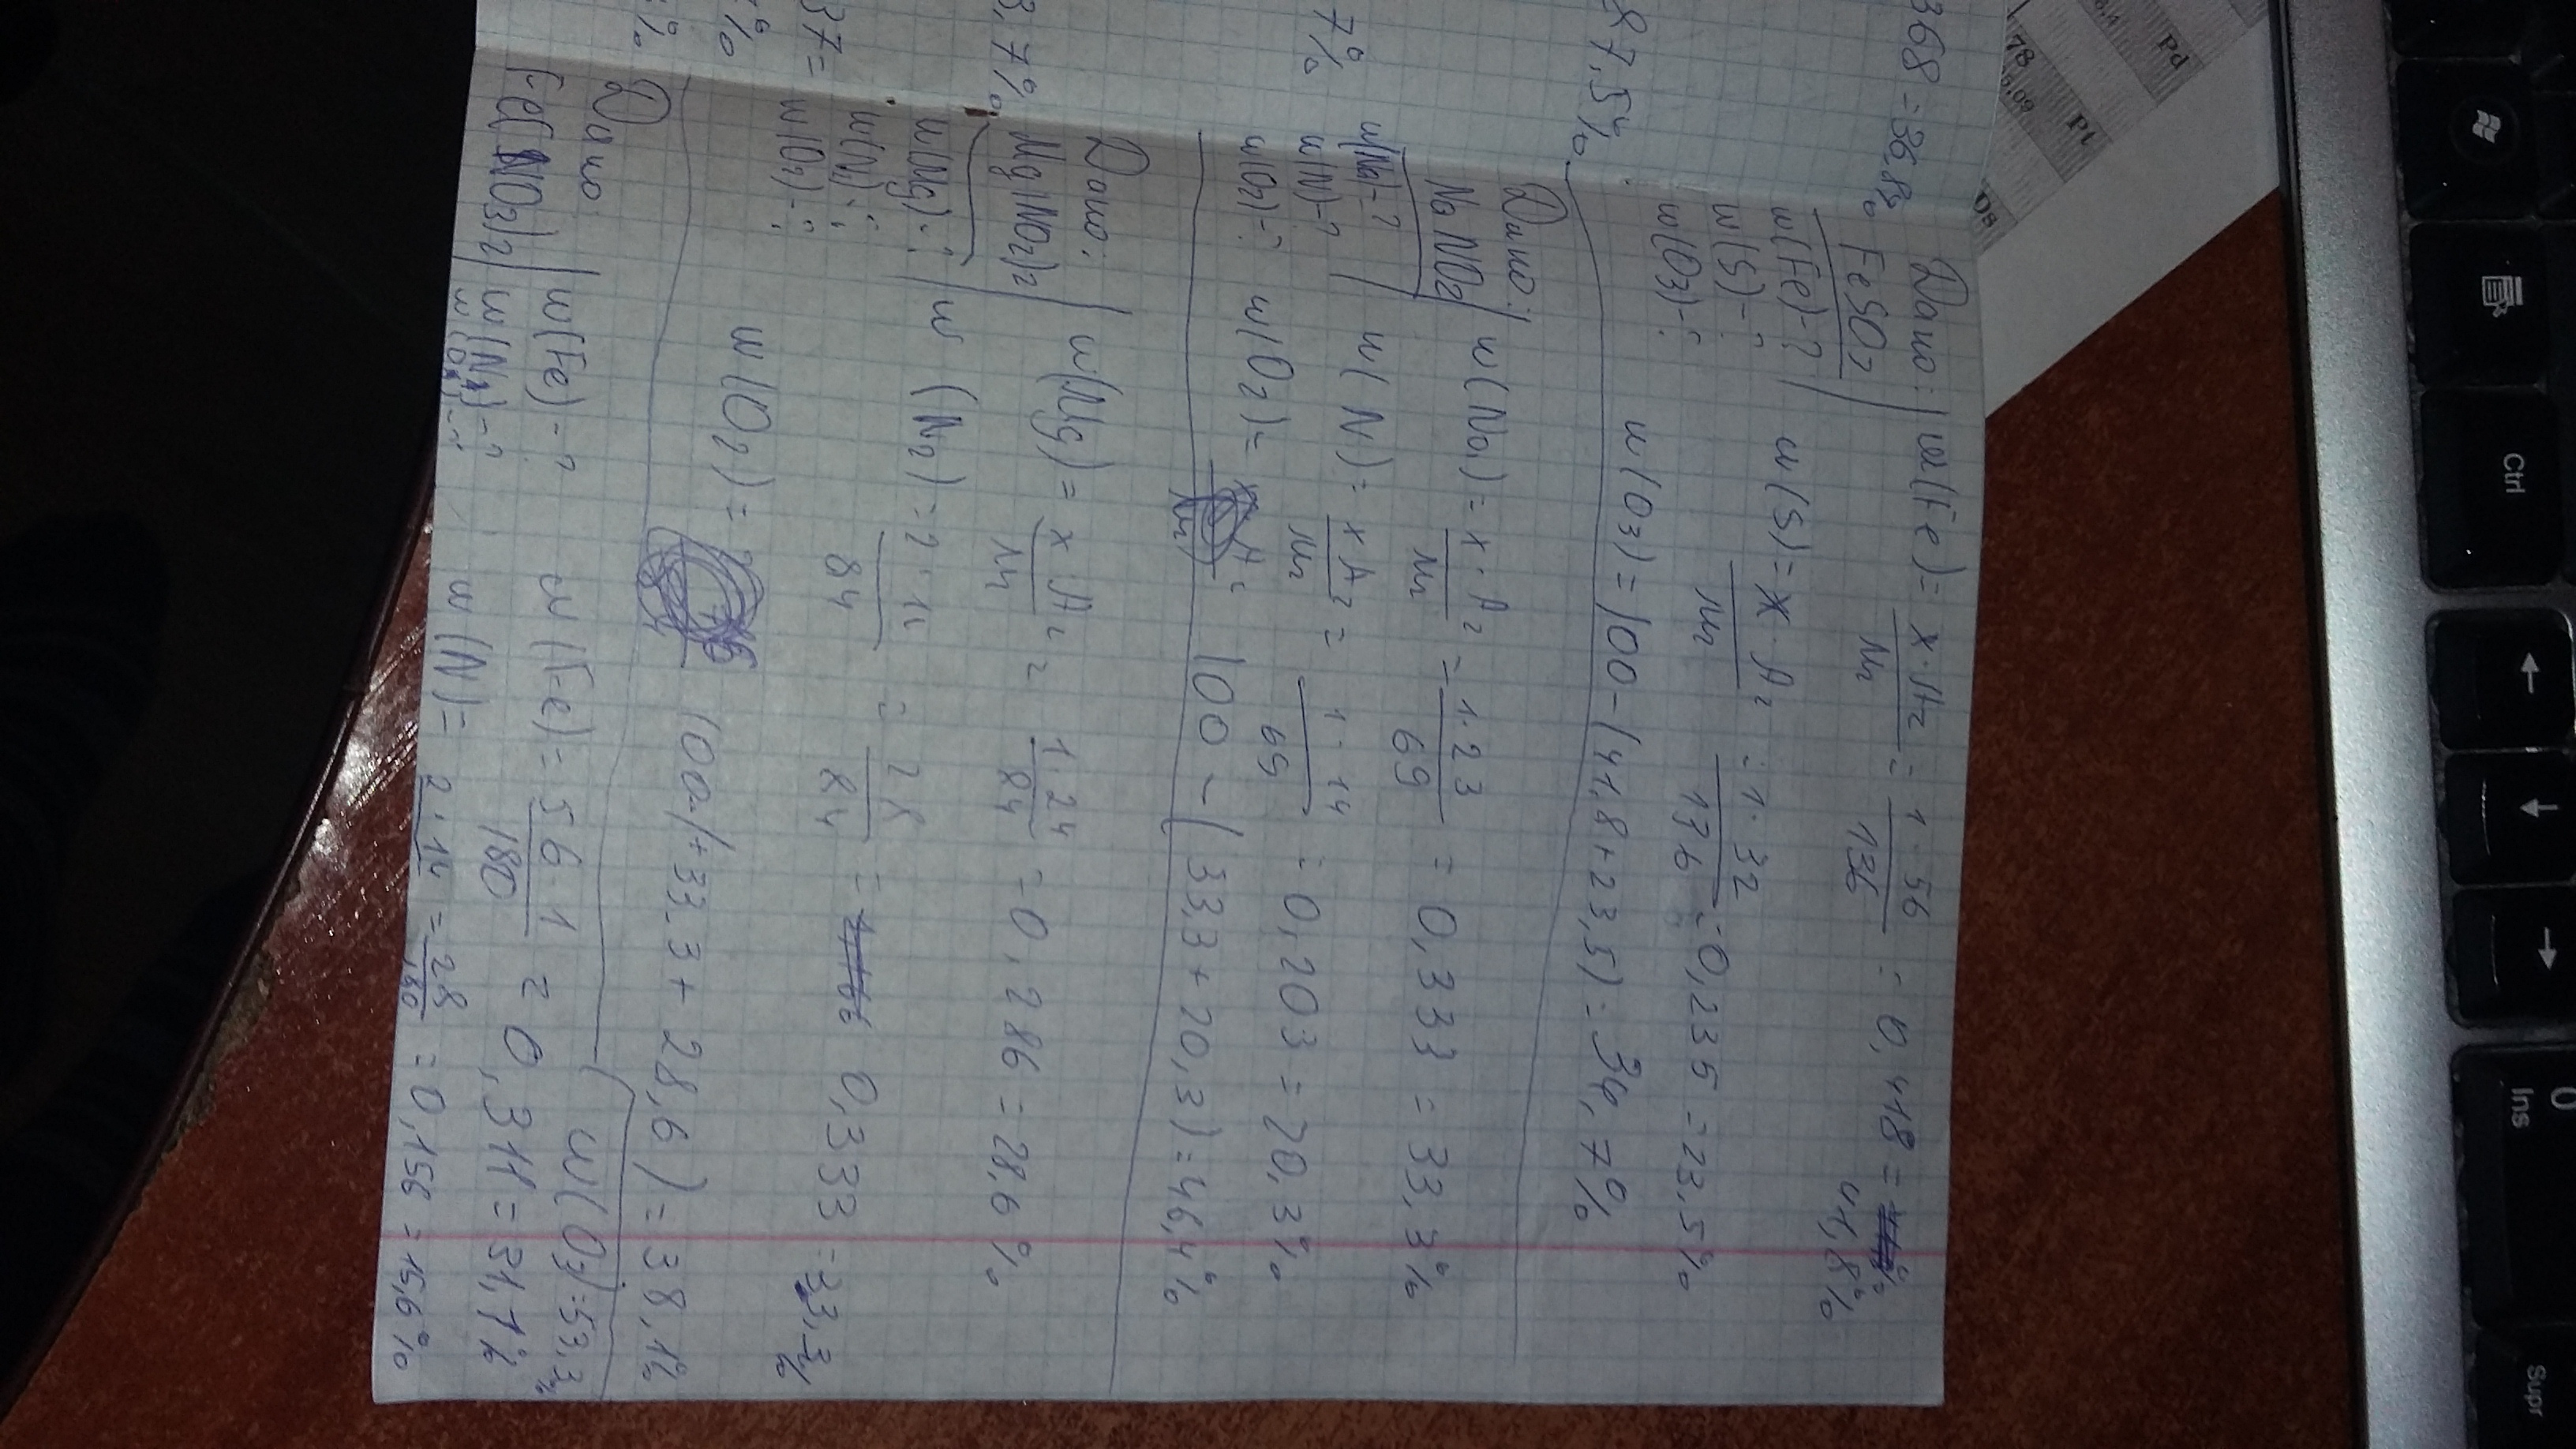 368 = 36,8%
87,5%
7%
3,7%
37 =
Дано:
FeSO3
w(Fe)-?
w(S)-?
w(O3)-?
w(Fe) = x·Ar / Mr = 1·56 / 136 = 0,418 = 41,8%
w(S) = x·Ar / Mr = 1·32 / 136 = 0,235 = 23,5%
w(O3) = 100-(41,8+23,5) = 34,7%
Дано:
NaNO2
w(Na)-?
w(N)-?
w(O2)-?
w(Na) = x·Ar / Mr = 1·23 / 69 = 0,333 = 33,3%
w(N) = x Ar / Mr = 1·14 / 69 = 0,203 = 20,3%
w(O2) = 100 - (33,3+20,3) = 46,4%
Дано:
Mg(NO2)2
w(Mg)-?
w(N)-?
w(O2)-?
w(Mg) = x Ar / Mr = 1·24 / 84 = 0,286 = 28,6%
w(N2) = 2·14 / 84 = 28 / 84 = 0,333 = 33,3%
w(O2) = 100-(33,3+28,6) = 38,1%
Дано:
Fe(NO3)2
w(Fe)-?
w(N)-?
w(O3)-?
w(Fe) = 56·1 / 180 = 0,311 = 31,1%
w(N) = 2·14 / 180 = 28 / 180 = 0,156 = 15,6%
w(O3) = 53,3%
Pd
78
Pt
Ctrl
←
↓
→
0
Ins
Supr